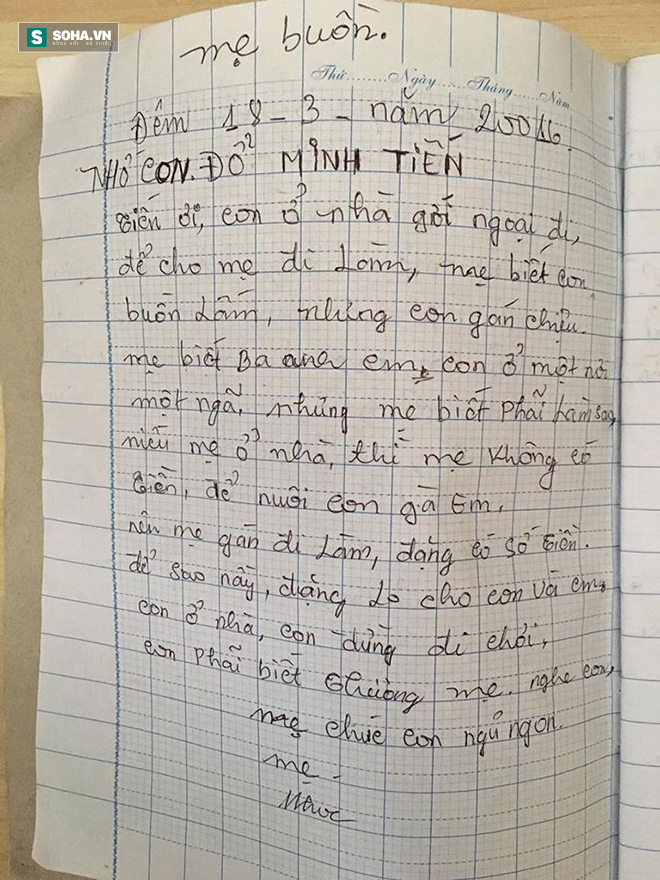 SOHA.VN
mẹ buồn.
Thứ........Ngày......Tháng......Năm
Đêm 18 - 3 - năm 20016.
NHỚ CON. ĐỔ MINH TIẾN
tiến ơi, con ở nhà gới ngoại đi,
để cho mẹ đi Làm, mẹ biết con
buồn Lắm, nhưng con gắn chịu.
mẹ biết Ba ana em, con ở một nơi
một ngã, nhưng mẹ biết Phải Làm sao,
niếu mẹ ở nhà, thì mẹ không có
tiền, để nuôi con gà Em,
nên mẹ gắn đi Làm, đặng có số tiền.
để sao nầy, đặng Lo cho con và em,
con ở nhà, con đừng đi chơi,
con phải biết thương mẹ. nghe con,
mẹ chúc con ngủ ngon.
mẹ -